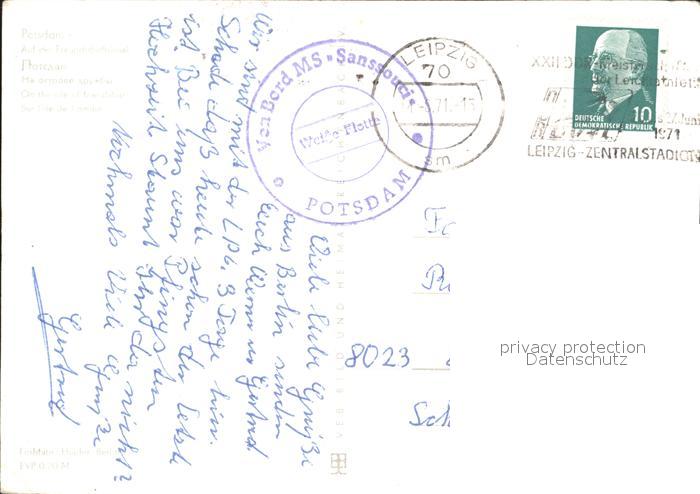 Potsdam -
Auf der Freundschaftsinsel
Потсдам
На острове дружбы
On the isle of friendship
Sur l'île de l'amitié
Viele liebe Grüße
aus Berlin senden
Euch Werner u Gertrud
Wir sind mit der LPG. 3 Tage hier.
Schade daß heute schon der letzte
ist. Bei uns war Pfingsten
Hochzeit Staunt Ihr da nicht?
Nochmals Viele Grüße
Gertrud
Von Bord MS "Sanssouci"
Weiße Flotte
POTSDAM
LEIPZIG
70
71.-15
sm
XXII. DDR-Meisterschaften
der Leichtathletik
Juni
1971
LEIPZIG-ZENTRALSTADION
DEUTSCHE
DEMOKRATISCHE REPUBLIK
10
8023
Sch
privacy protection
Datenschutz
VEB BILD UND HEIMAT REICHENBACH
EVP 0,20 M